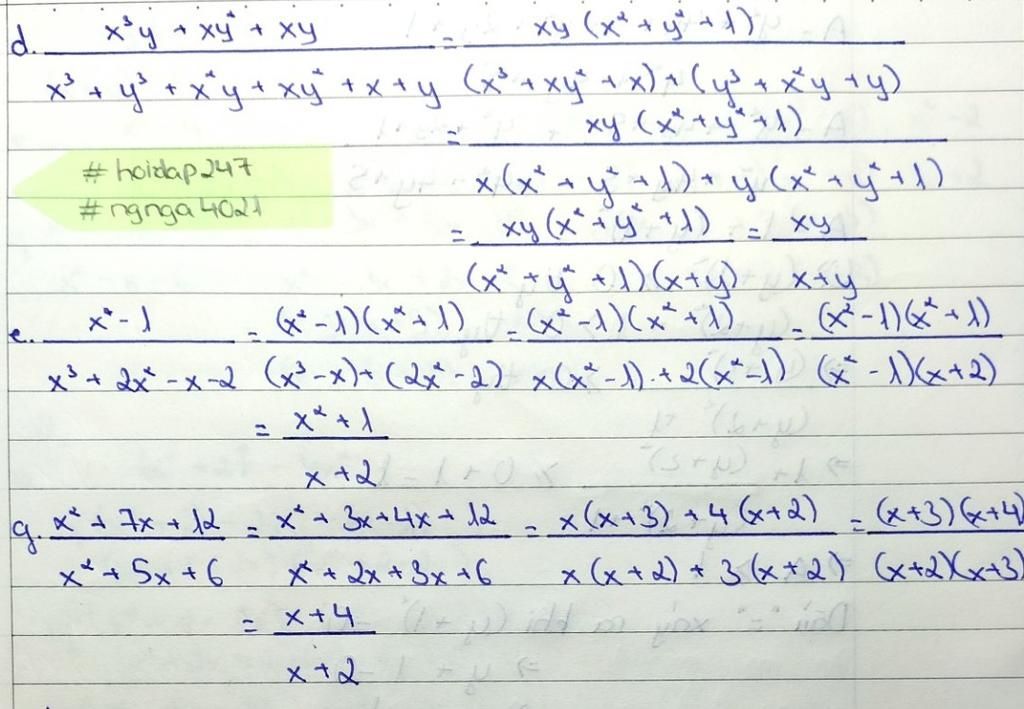 d. (x³y + xy² + xy)/(x³ + y³ + x²y + xy² + x + y) = xy(x² + y² + 1)/((x³ + xy² + x) + (y³ + x²y + y))
= xy(x² + y² + 1)/(x(x² + y² + 1) + y(x² + y² + 1))
#hoidap247
#ngnga4021
= xy(x² + y² + 1)/((x² + y² + 1)(x+y)) = xy/(x+y)
e. (x² - 1)/(x³ + 2x² - x - 2) = (x² - 1)(x² + 1)/((x³ - x) + (2x² - 2)) = (x² - 1)(x² + 1)/(x(x² - 1) + 2(x² - 1)) = (x² - 1)(x² + 1)/((x² - 1)(x + 2))
= (x² + 1)/(x + 2)
g. (x² + 7x + 12)/(x² + 5x + 6) = (x² + 3x + 4x + 12)/(x² + 2x + 3x + 6) = (x(x+3) + 4(x+2))/(x(x+2) + 3(x+2)) = (x+3)(x+4)/((x+2)(x+3))
= (x+4)/(x+2)